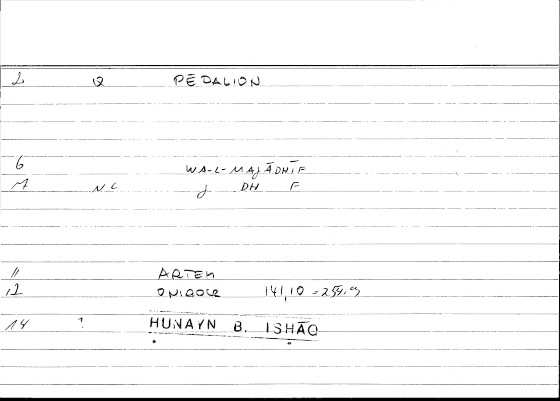 2 Q PĒDALION
6 WA-L-MAJĀDHĪF
M NC J DH F
11 ARTEM
12 ONIROCR 141,10 = 254.
14 ? HUNAYN B. ISHĀQ